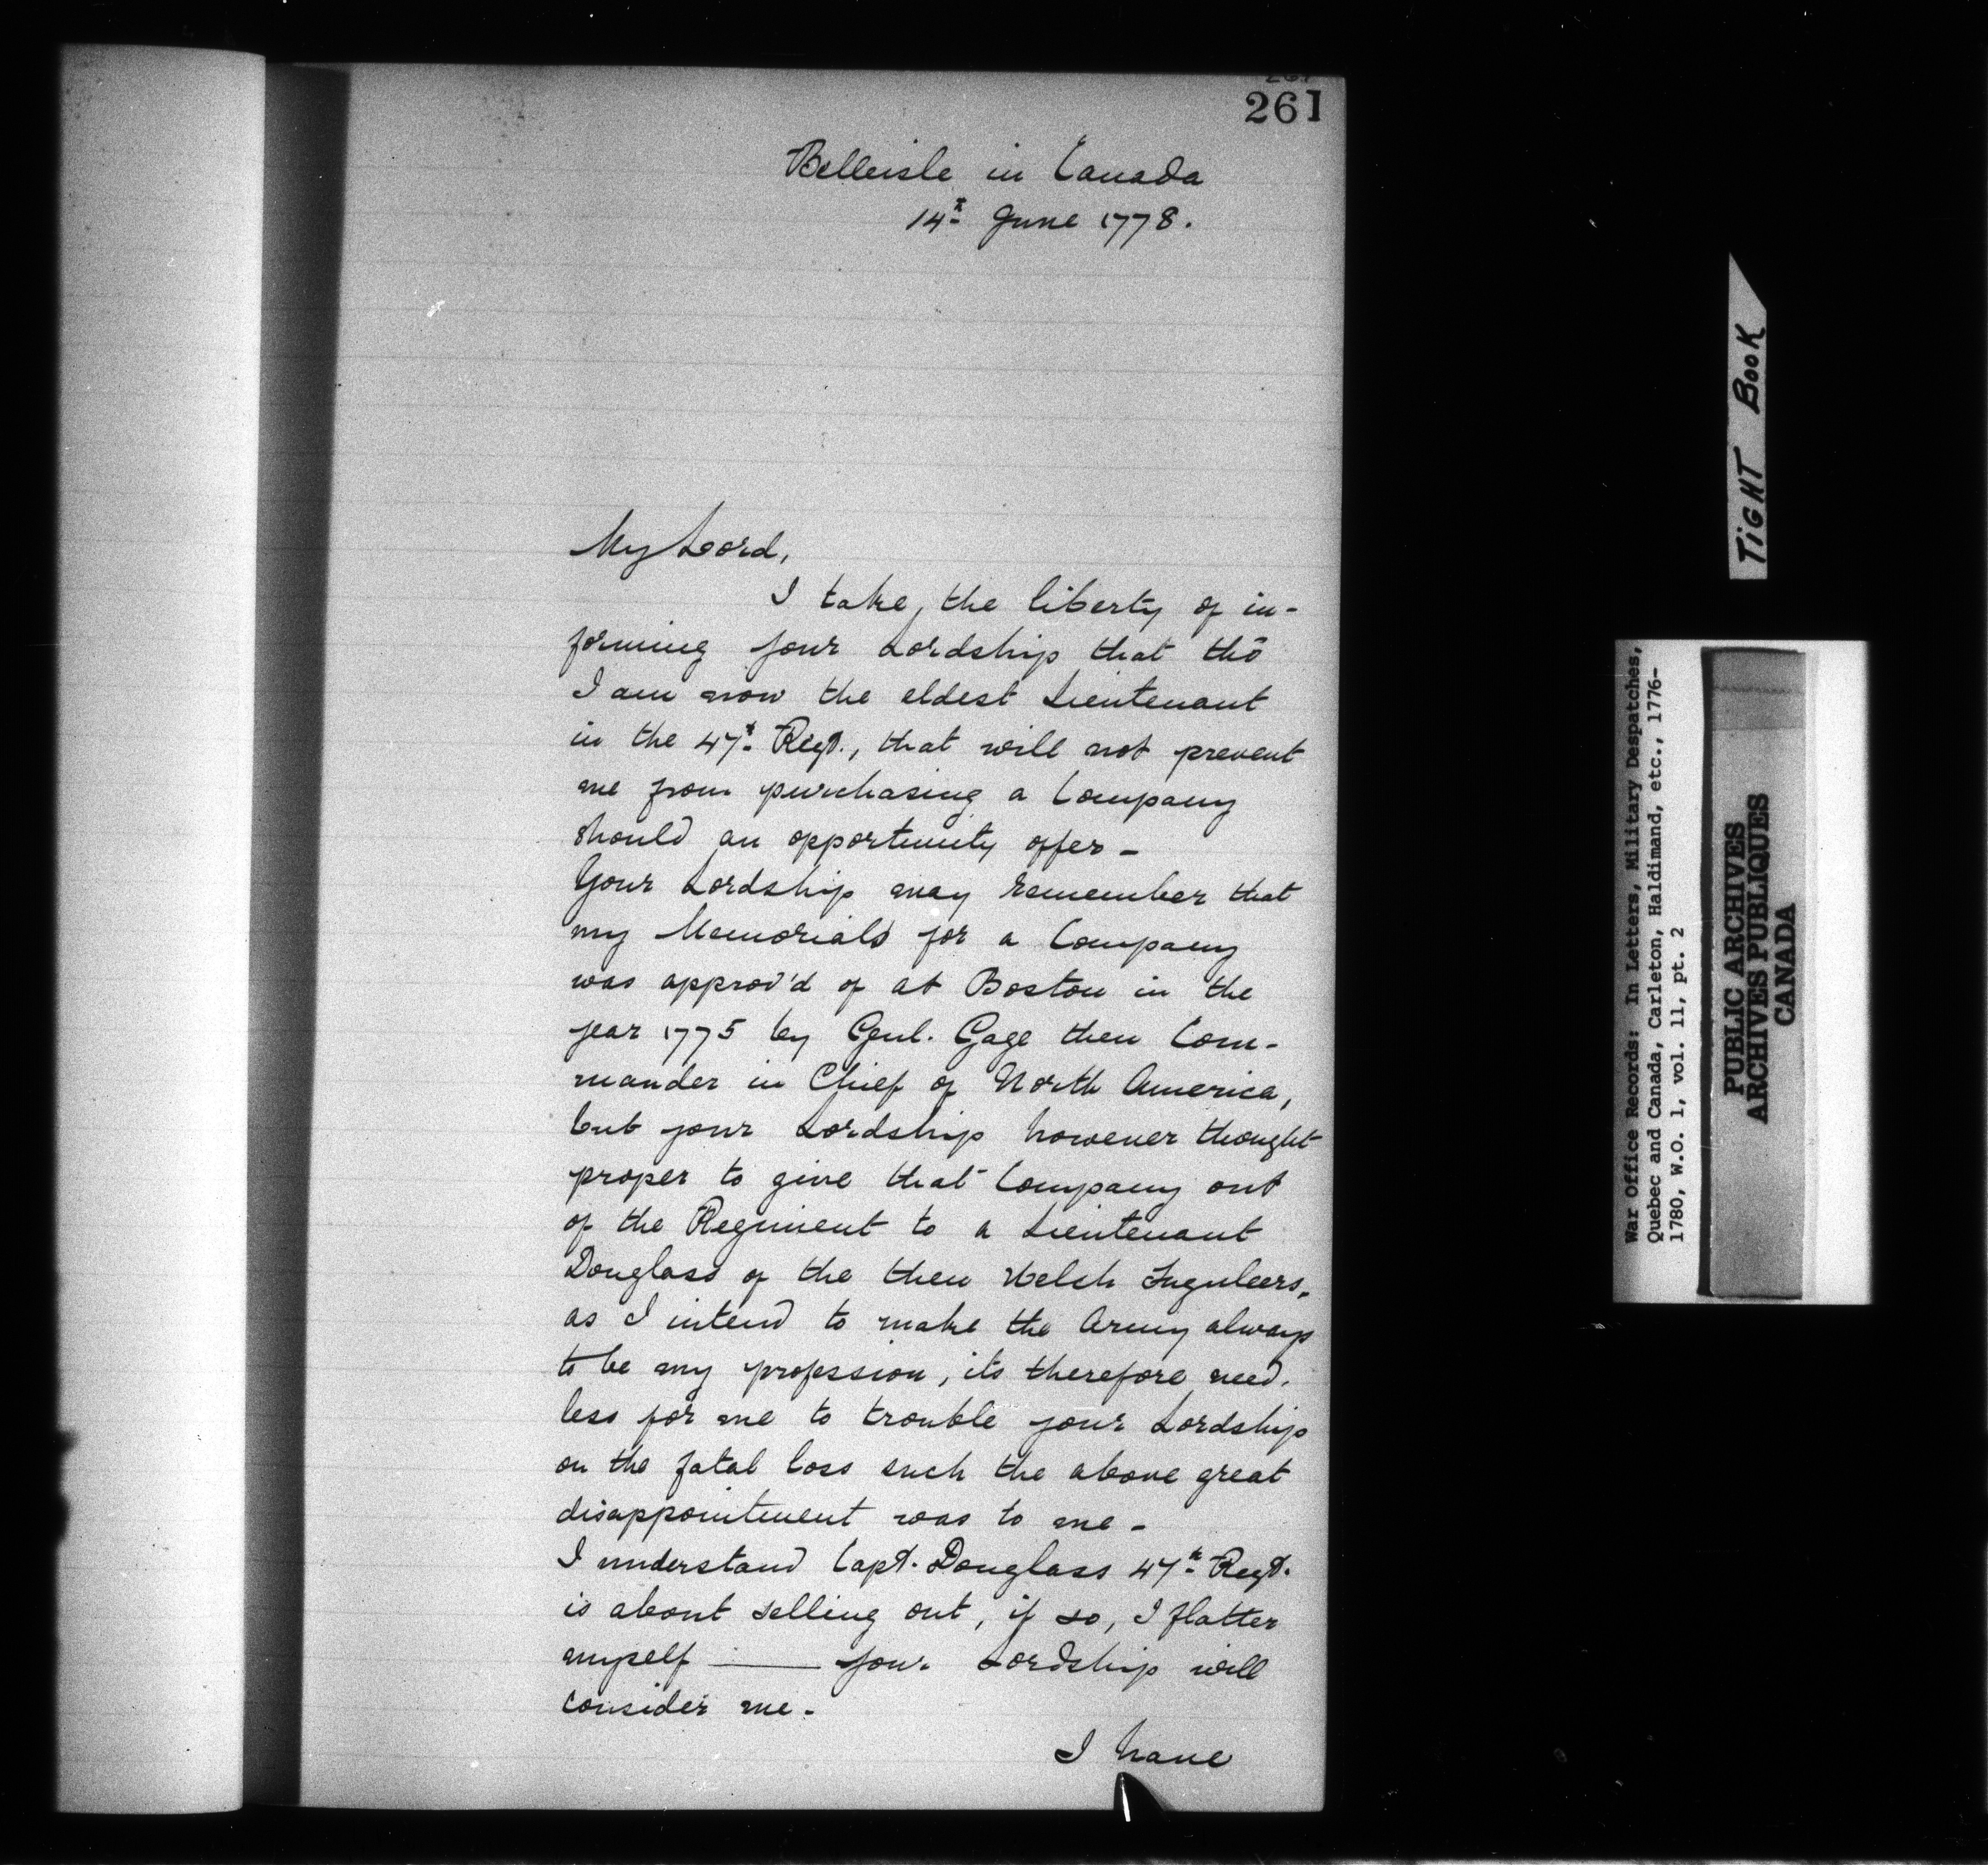 261
Belleisle in Canada
14th June 1778.
My Lord,
I take, the liberty of in-
forming your Lordship that thō
I am now the eldest Lieutenant
in the 47th Regt., that will not prevent
me from purchasing a Company
should an opportunity offer -
Your Lordship may remember that
my Memorials for a Company
was approv'd of at Boston in the
year 1775 by Genl. Gage then Com-
mander in Chief of North America,
but your Lordship however thought
proper to give that Company out
of the Regiment to a Lieutenant
Douglass of the then Welsh
as I intend to make the Army always
to be my profession, its therefore need-
less for me to trouble your Lordship
on the fatal loss such the above great
disappointment was to me -
I understand Capt. Douglass 47th Regt.
is about selling out, if so, I flatter
myself — your Lordship will
consider me.
I have
TIGHT BOOK
War Office Records: In Letters, Military Despatches,
Quebec and Canada, Carleton, Haldimand, etc., 1776-
1780, W.O. 1, vol. 11, pt. 2
PUBLIC ARCHIVES
ARCHIVES PUBLIQUES
CANADA